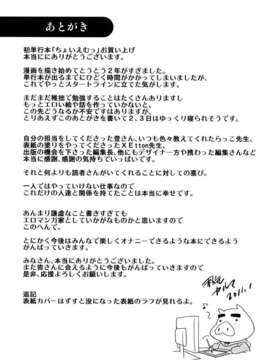 あとがき
初単行本「ちょいえむっ」お買い上げ
本当にありがとうございます。
漫画を描き始めてとうとう2年がすぎました。
単行本が出るまでにひどく時間がかかってしまいましたが、
これでやっとスタートラインに立てた気がします。
まだまだ稚拙で勉強することはたくさんありますし
もっとエロい絵や話を作っていかないと、
この先どうなるか不安ではすはありますが、
とりあえずこのあとがきを書いて2、3日はゆっくり寝られそうです。
自分の担当をしてくださった皆さん、いつも色々教えてくれたらっこ先生、
表紙の塗りをやってくださったXEtton先生、
出版の機会を下さった編集長、他にもデザイナー方や携わった編集さんなど
本当に感謝、感謝の気持ちでいっぱいです。
それと何よりも読者さんがいてくれることに対しての喜び。
一人ではやっていけない仕事なので
これだけの人達と関係を持てたことは本当に幸せです。
あんまり謙虚なこと書きすぎても
エロマンガ家としていかがなものかと思いますので
このへんで。
とにかく今後はみんなで楽しくオナニーできるような本にできるよう
がんばっていきますので、
みなさん、本当にありがとうございました。
また皆さんに会えるように今後もがんばっていきますので
是非、応援よろしくお願いします。
2011.1
追記
表紙カバーはずすと没になった表紙のラフが見れるよ。